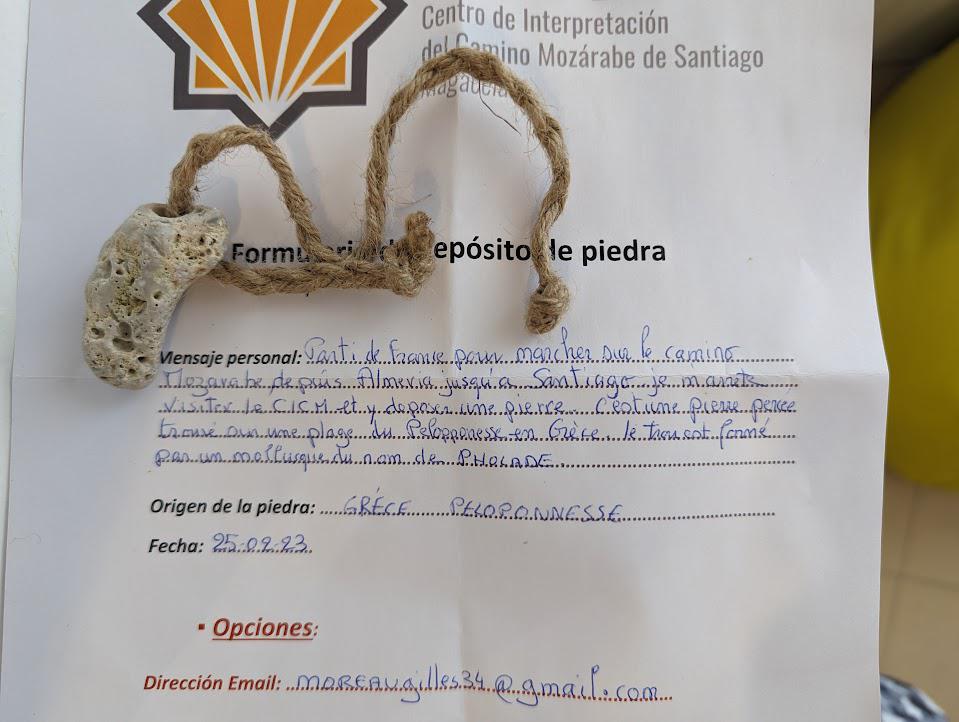 Centro de Interpretación
del Camino Mozárabe de Santiago
Magacela
Formulario de depósito de piedra
Mensaje personal: Parti de France pour marcher sur le camino
Mozarabe depuis Almeria jusqu'à Santiago je m'arrête
visiter le CICM et y deposer une pierre. C'est une pierre percée
trouvé sur une plage du Peloponnesse en Grèce. le trou est formé
par un mollusque du nom de PHOLADE
Origen de la piedra: GRÈCE PELOPONNESSE
Fecha: 25.02.23
▪ Opciones:
Dirección Email: MOREAUgilles34@gmail.com